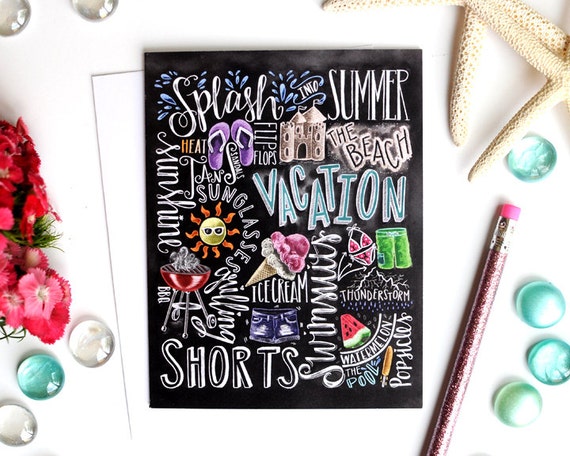 Splash INTO SUMMER
HEAT
FLIP
FLOPS
THE
BEACH
Sunshine
TANS
SUNGLASSES
VACATION
BBQ
Grilling
ICE CREAM
Swimsuits
THUNDERSTORM
SHORTS
WATERMELON
THE
POOL
Popsicles